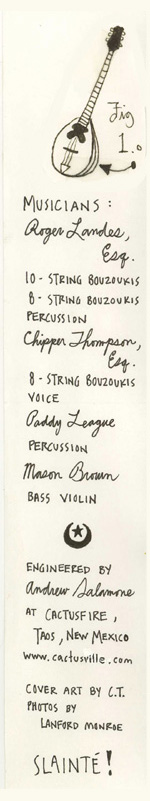 Fig
1.0
MUSICIANS:
Roger Landes,
Esq.
10-STRING BOUZOUKIS
8-STRING BOUZOUKIS
PERCUSSION
Chipper Thompson,
Esq.
8-STRING BOUZOUKIS
VOICE
Paddy League
PERCUSSION
Mason Brown
BASS VIOLIN
ENGINEERED BY
Andrew Salamone
AT CACTUSFIRE,
TAOS, NEW MEXICO
www.cactusville.com
COVER ART BY C.T.
PHOTOS BY
LANFORD MONROE
SLAINTÉ!